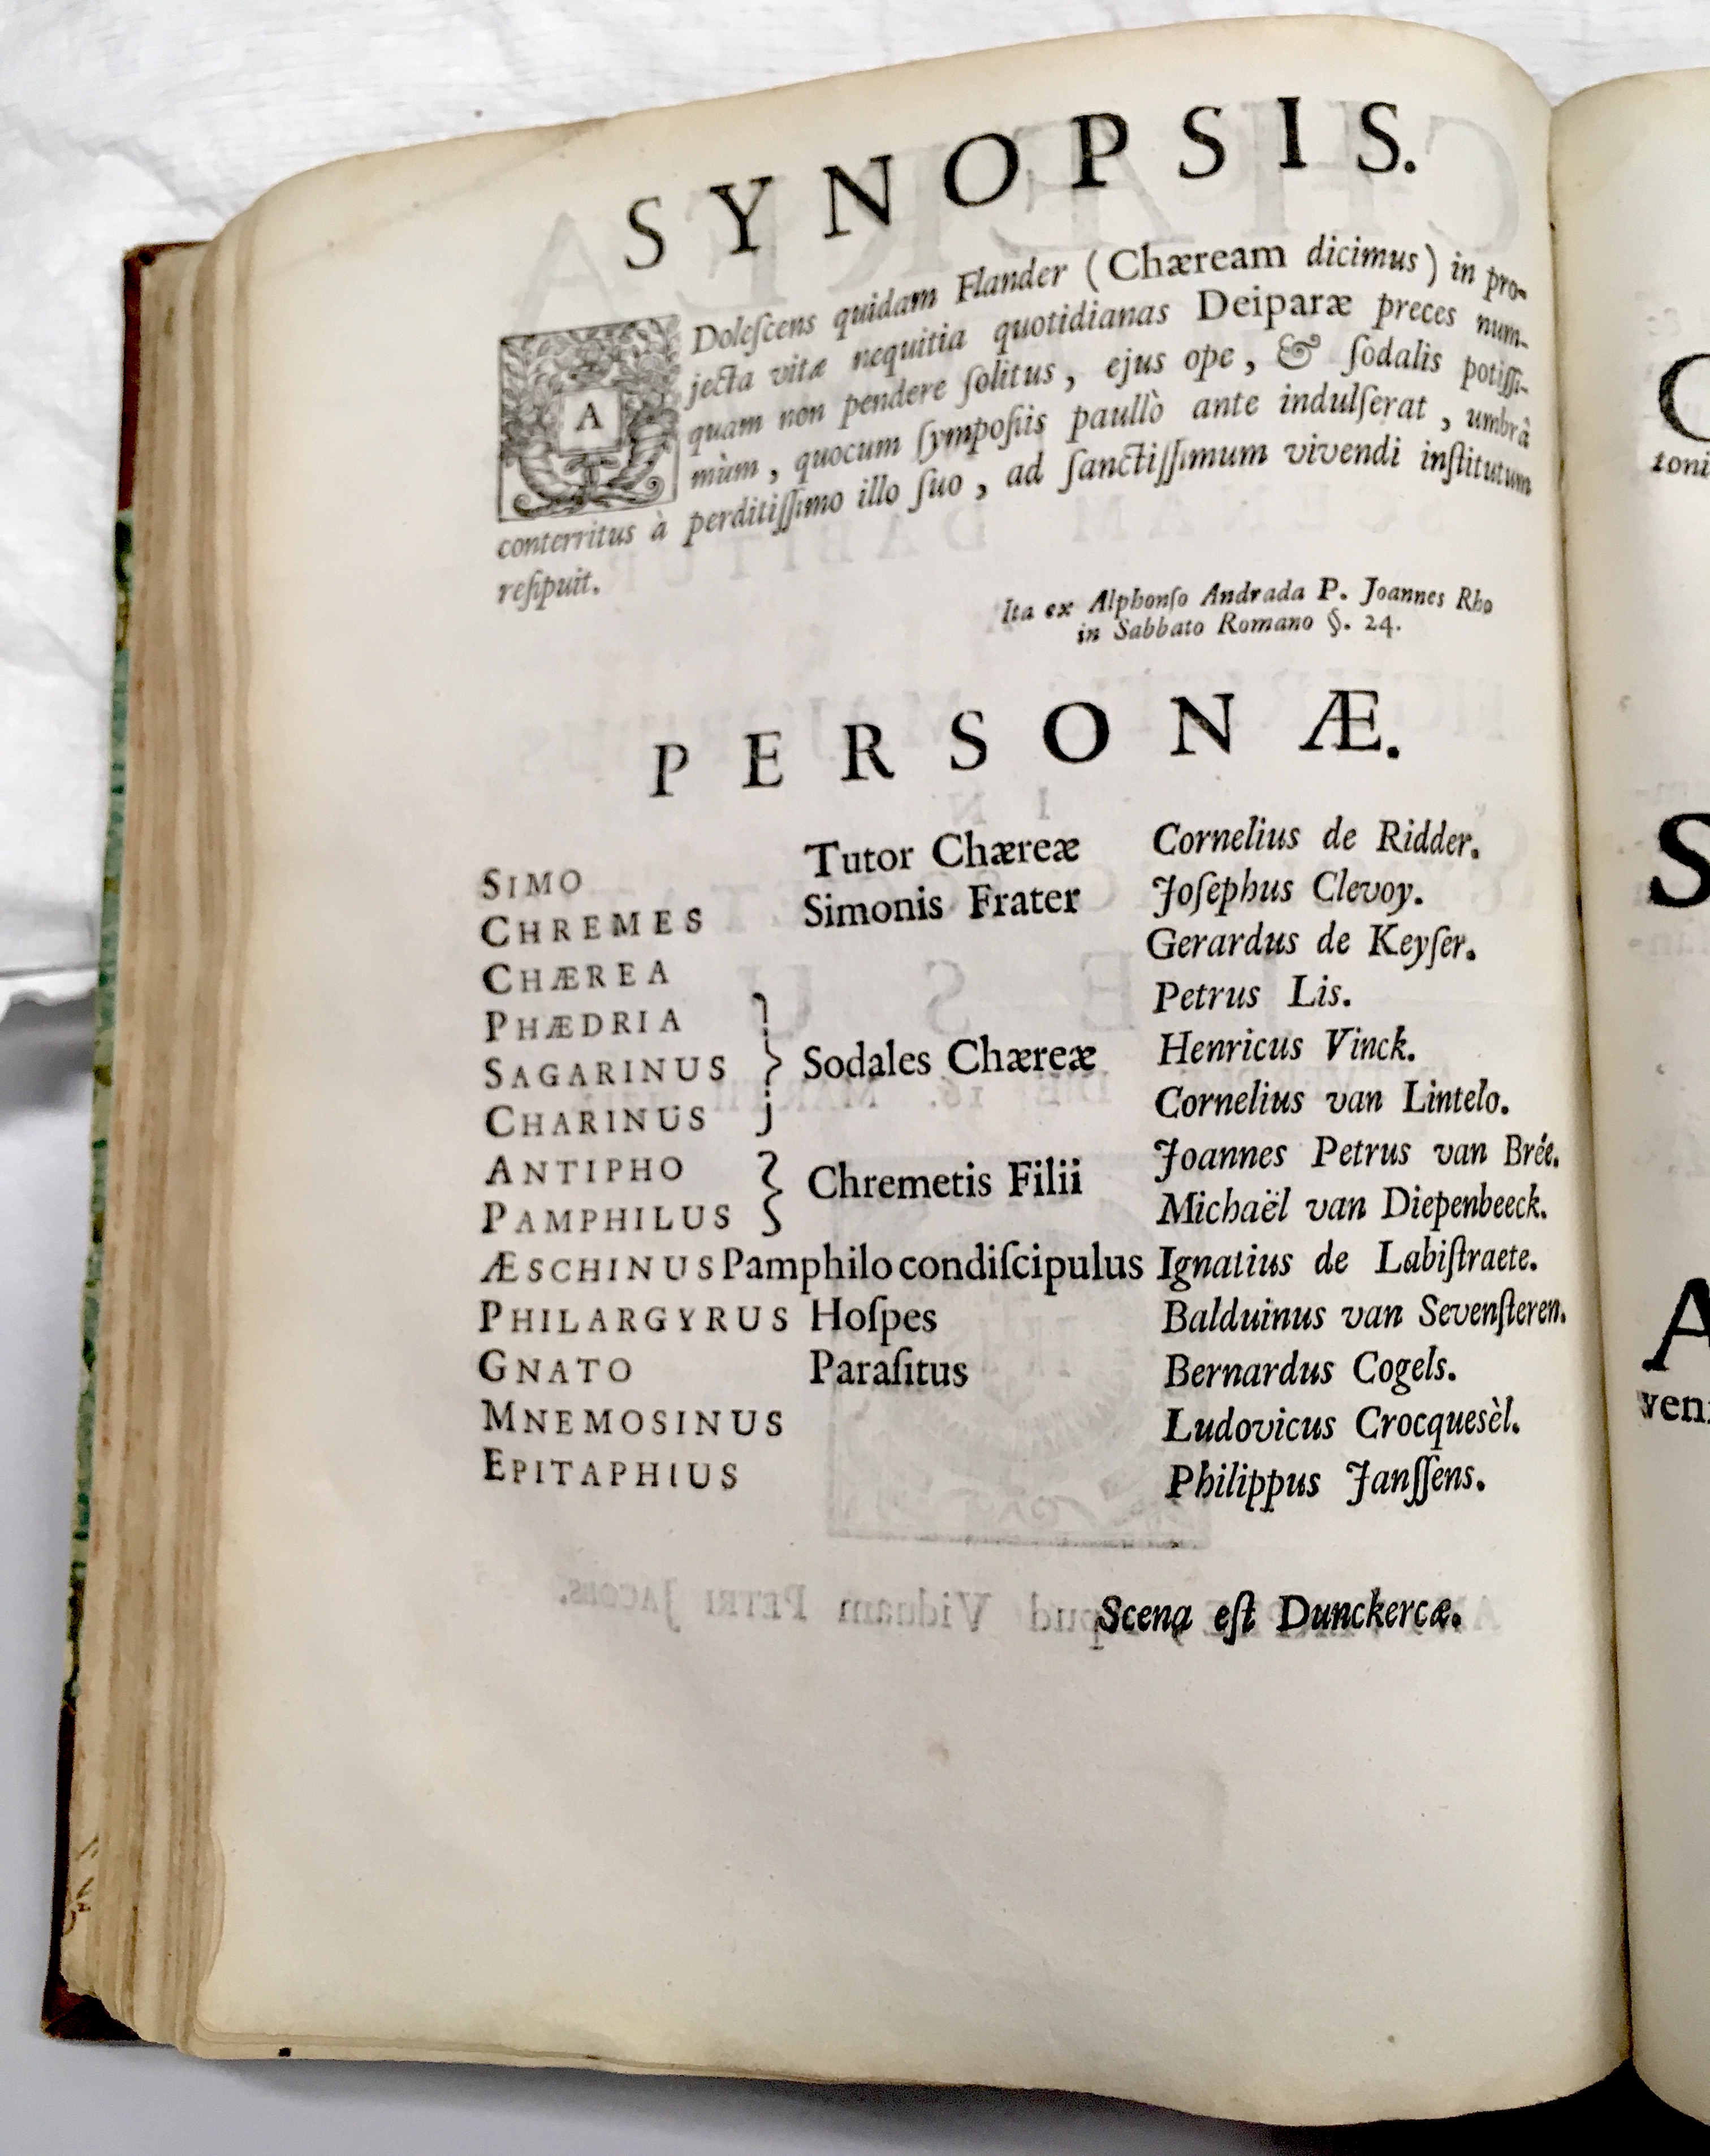 SYNOPSIS.
ADoleſcens quidam Flander (Chæream dicimus) in pro-
jecta vitæ nequitia quotidianas Deiparæ preces num-
quam non pendere ſolitus, ejus ope, & ſodalis potiſſi-
mùm, quocum ſympoſiis paullò ante indulſerat, umbrâ
conterritus à perditiſſimo illo ſuo, ad ſanctiſſimum vivendi inſtitutum
reſipuit.
Ita ex Alphonſo Andrada P. Joannes Rho
in Sabbato Romano §. 24.
PERSONÆ.
SIMO Tutor Chæreæ Cornelius de Ridder.
CHREMES Simonis Frater Joſephus Clevoy.
CHÆREA Gerardus de Keyſer.
PHÆDRIA Petrus Lis.
SAGARINUS } Sodales Chæreæ Henricus Vinck.
CHARINUS Cornelius van Lintelo.
ANTIPHO } Chremetis Filii Joannes Petrus van Brée.
PAMPHILUS Michaël van Diepenbeeck.
ÆSCHINUS Pamphilo condiſcipulus Ignatius de Labiſtraete.
PHILARGYRUS Hoſpes Balduinus van Sevenſteren.
GNATO Paraſitus Bernardus Cogels.
MNEMOSINUS Ludovicus Crocquesèl.
EPITAPHIUS Philippus Janſſens.
Scena eſt Dunckercæ.